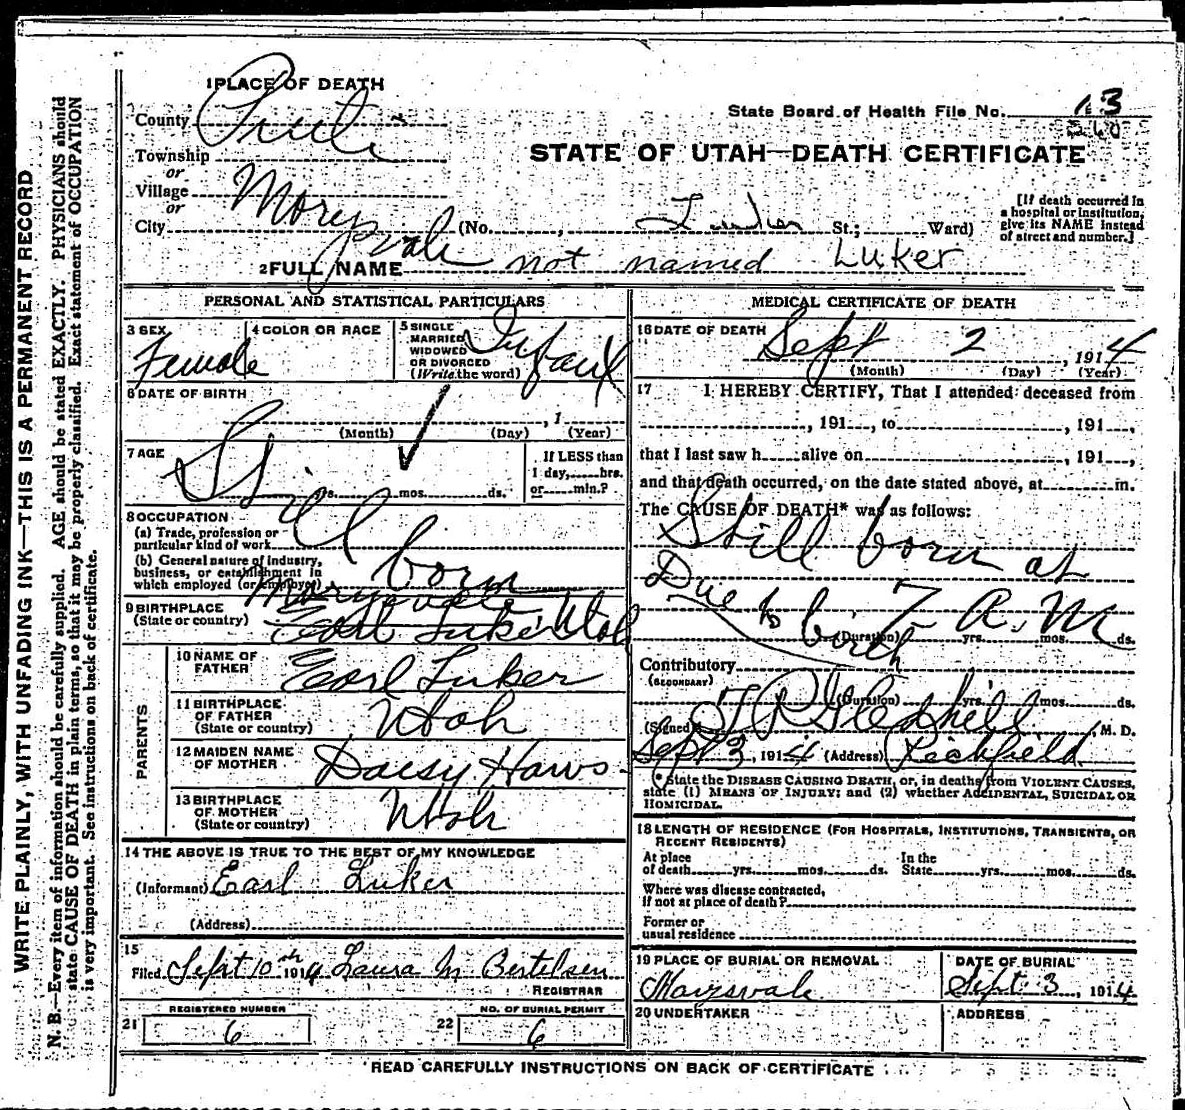 WRITE PLAINLY, WITH UNFADING INK—THIS IS A PERMANENT RECORD
N. B.—Every item of information should be carefully supplied. AGE should be stated EXACTLY. PHYSICIANS should
state CAUSE OF DEATH in plain terms, so that it may be properly classified. Exact statement of OCCUPATION
is very important. See instructions on back of certificate.
1 PLACE OF DEATH
County Piute
Township
or
Village Marysvale
or
City
State Board of Health File No. 13
STATE OF UTAH—DEATH CERTIFICATE
(No. , Luker St.; Ward)
[If death occurred in
a hospital or institution,
give its NAME instead
of street and number.]
2 FULL NAME not named Luker
PERSONAL AND STATISTICAL PARTICULARS
3 SEX
Female
4 COLOR OR RACE
5 SINGLE
MARRIED
WIDOWED
OR DIVORCED
(Write the word)
Infant
6 DATE OF BIRTH
, 1
(Month) (Day) (Year)
7 AGE
yrs. mos. ds.
If LESS than
1 day, hrs.
or min.?
Still born
8 OCCUPATION
(a) Trade, profession or
particular kind of work
(b) General nature of industry,
business, or establishment in
which employed (or employer)
9 BIRTHPLACE
(State or country)
Marysvale
Earl Luker Utah
PARENTS
10 NAME OF
FATHER
Earl Luker
11 BIRTHPLACE
OF FATHER
(State or country)
Utah
12 MAIDEN NAME
OF MOTHER
Daisy Haws
13 BIRTHPLACE
OF MOTHER
(State or country)
Utah
14 THE ABOVE IS TRUE TO THE BEST OF MY KNOWLEDGE
(Informant) Earl Luker
(Address)
15
Filed Sept 10th 1914 Laura M Bertelsen
REGISTRAR
REGISTERED NUMBER
21 6
NO. OF BURIAL PERMIT
22 6
MEDICAL CERTIFICATE OF DEATH
16 DATE OF DEATH
Sept 2, 1914
(Month) (Day) (Year)
17 I HEREBY CERTIFY, That I attended deceased from
, 191 , to , 191 ,
that I last saw h alive on , 191 ,
and that death occurred, on the date stated above, at m.
The CAUSE OF DEATH* was as follows:
Still born at
Due to birth 7 A. M
(Duration) yrs. mos. ds.
Contributory
(SECONDARY)
(Duration) yrs. mos. ds.
(Signed) T R Gledhill M. D.
Sept 3, 1914 (Address) Richfield
*State the DISEASE CAUSING DEATH, or, in deaths from VIOLENT CAUSES,
state (1) MEANS OF INJURY; and (2) whether ACCIDENTAL, SUICIDAL OR
HOMICIDAL.
18 LENGTH OF RESIDENCE (FOR HOSPITALS, INSTITUTIONS, TRANSIENTS, OR
RECENT RESIDENTS)
At place
of death yrs. mos. ds.
In the
State yrs. mos. ds.
Where was disease contracted,
if not at place of death?
Former or
usual residence
19 PLACE OF BURIAL OR REMOVAL
Marysvale
DATE OF BURIAL
Sept. 3, 1914
20 UNDERTAKER
ADDRESS
READ CAREFULLY INSTRUCTIONS ON BACK OF CERTIFICATE